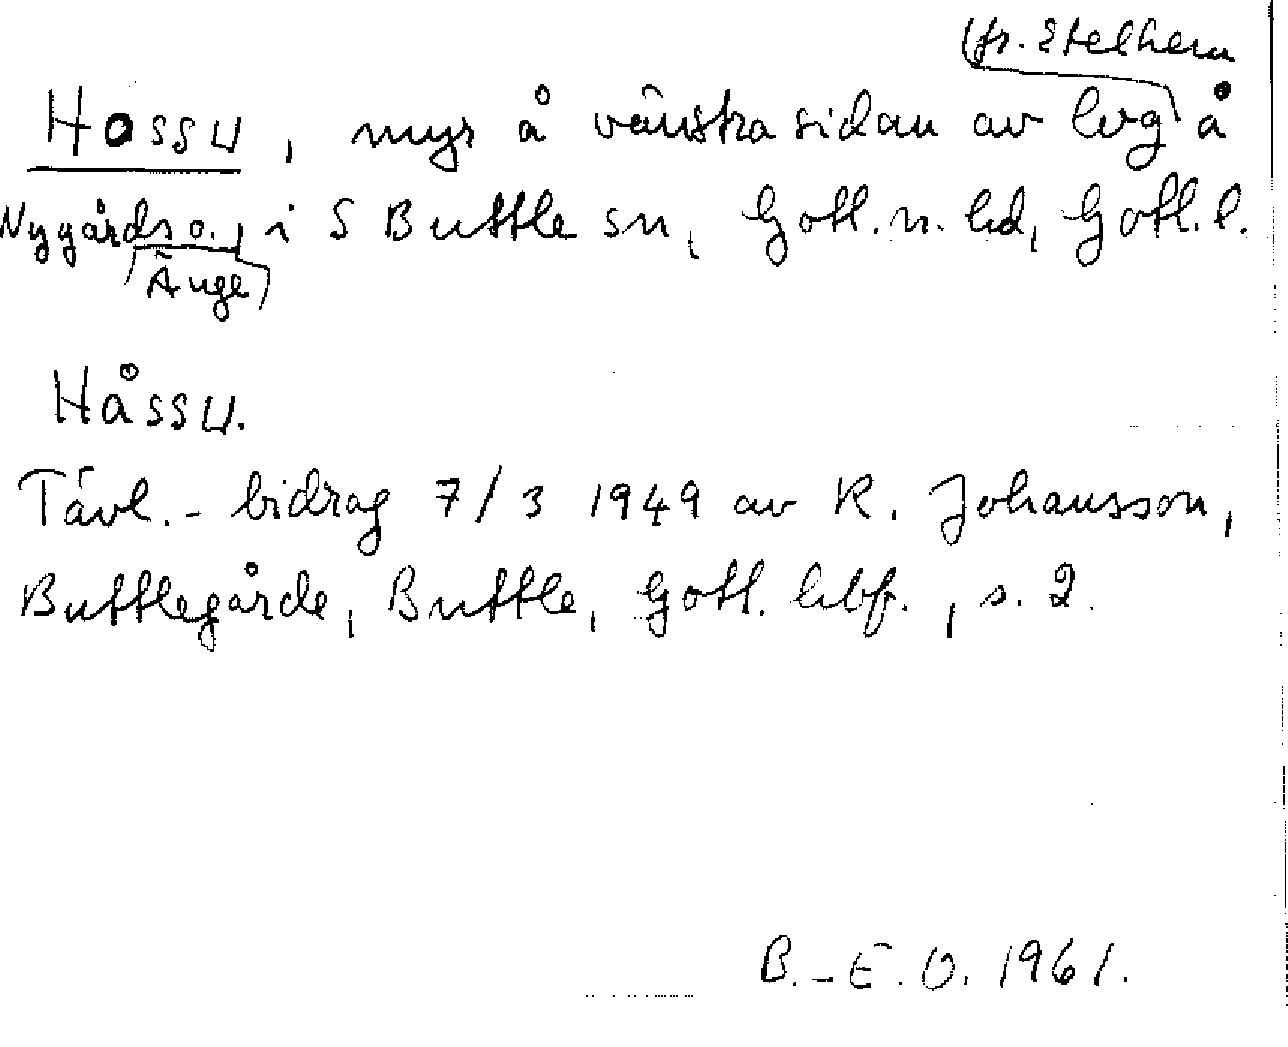 (fr. Etelhem
Hossu, myr å vänstra sidan av lvg å
Nygårds o. i S Buttle sn, Gotl. n. hd, Gotl. l.
(Änge)
Håssu.
Tävl.-bidrag 7/3 1949 av K. Johansson,
Buttlegårde, Buttle, Gotl. hbf., s. 2.
B.-E. O. 1961.